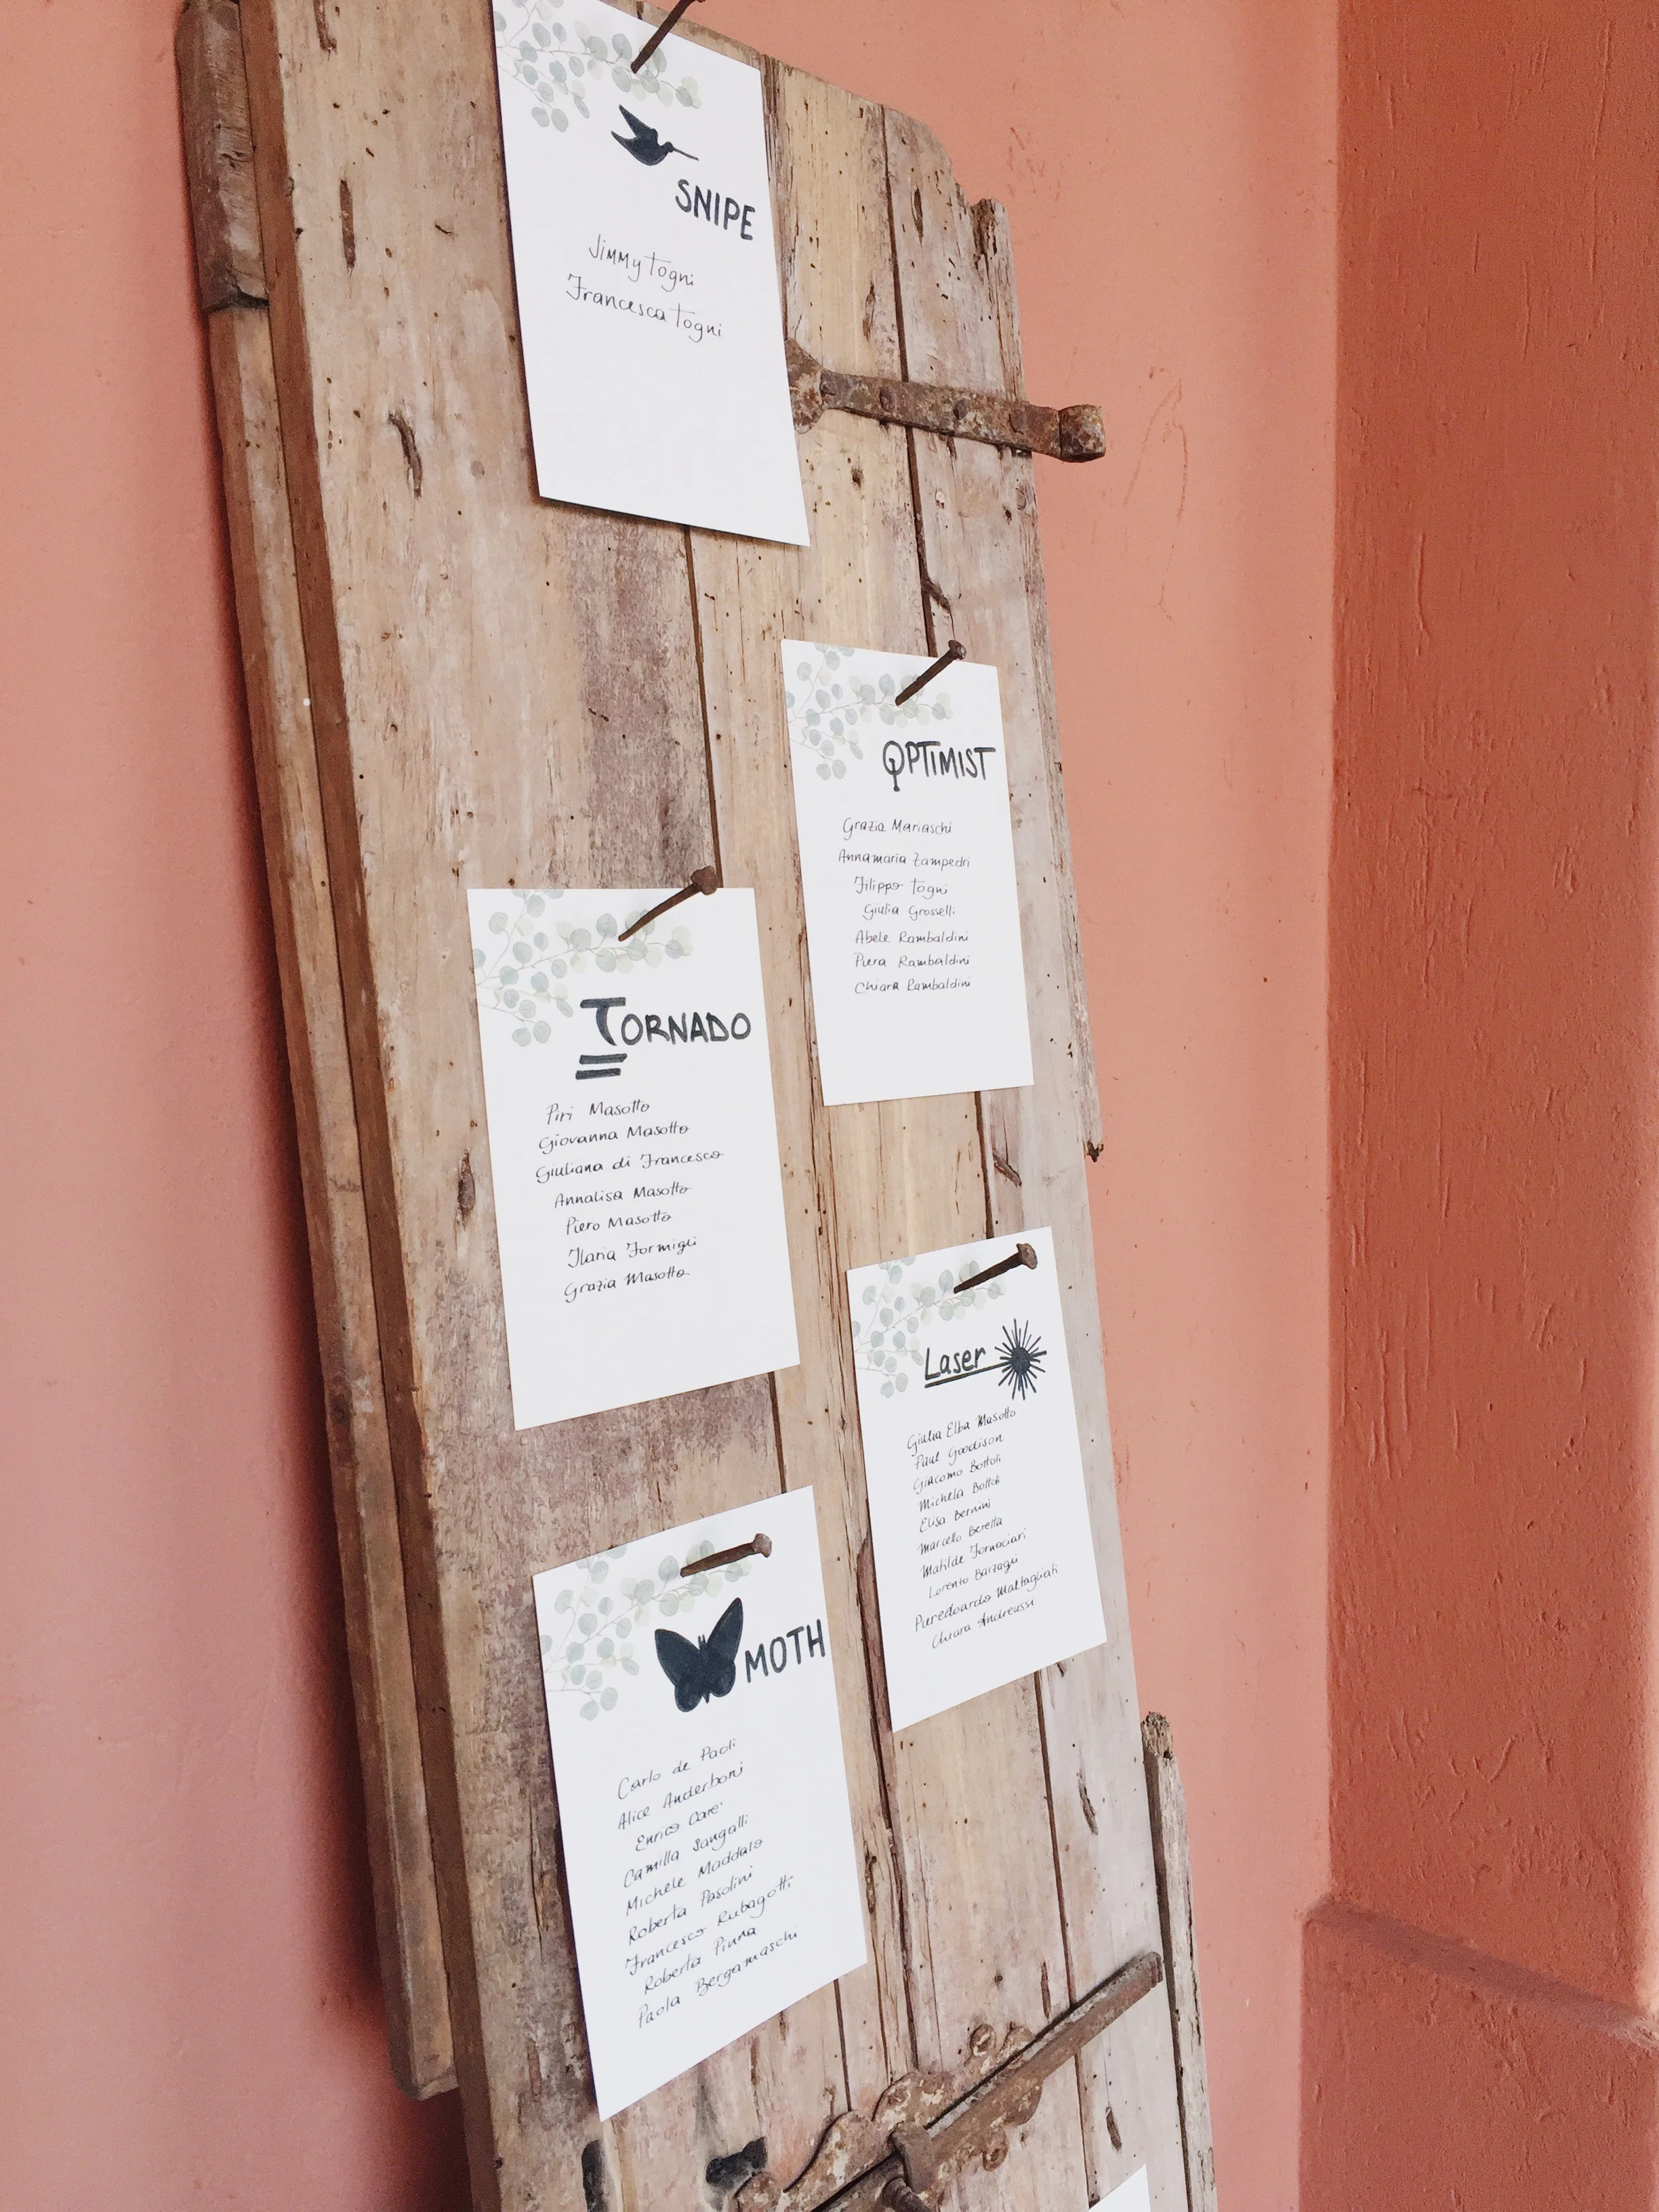 SNIPE
Jimmy Togni
Francesca Togni
OPTIMIST
Grazia Mariaschi
Annamaria Zampedri
Filippo Togni
Giulia Grosselli
Abele Rambaldini
Piera Rambaldini
Chiara Rambaldini
TORNADO
Piri Masotto
Giovanna Masotto
Giuliana di Francesco
Annalisa Masotto
Piero Masotto
Ilaria Formigli
Grazia Masotto
Laser
Giulia Elba Masotto
Paul Goodison
Giacomo Bottoli
Michela Bottoli
Elisa Bernini
Marcello Beretta
Matilde Fornaciari
Lorenzo Barzaghi
Pieredoardo Maltagliati
Chiara Andreussi
MOTH
Carlo de Paoli
Alice Anderboni
Enrico Care'
Camilla Sangalli
Michele Maddalo
Roberta Pasolini
Francesco Rubagotti
Roberta Pinna
Paola Bergamaschi